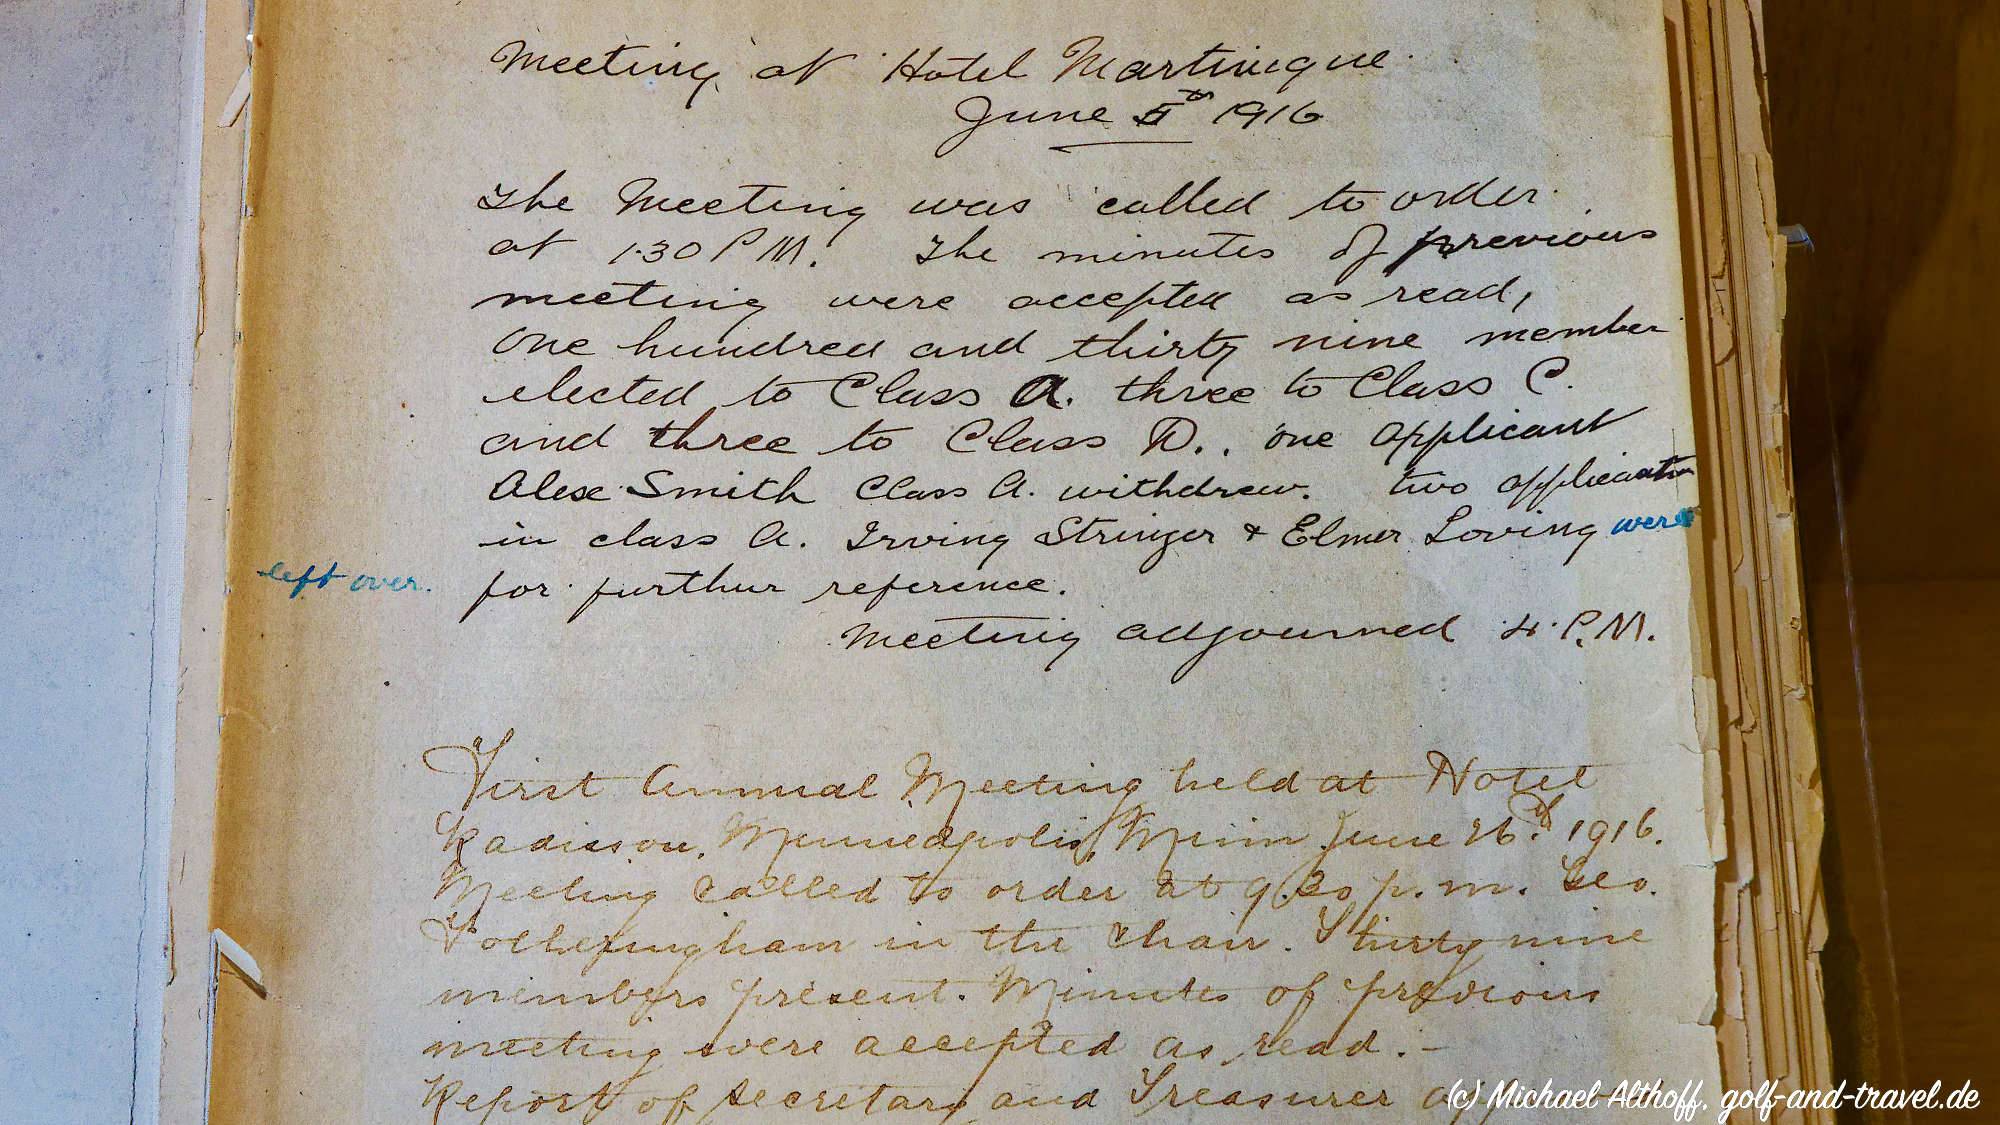 Meeting at Hotel Martinique.
June 5th 1916
The Meeting was called to order
at 1.30 P.M. The minutes of previous
meeting were accepted as read,
One hundred and thirty nine member
elected to Class A. three to Class C.
and three to Class D.. one applicant
Alex Smith Class A. withdrew. two application
in class A. Irving Stringer & Elmer Loving were
left over. for furthur reference.
Meeting adjourned 4. P.M.
First Annual Meeting held at Hotel
Radisson, Minneapolis, Minn June 26th 1916.
Meeting called to order at 9.20 p.m. Geo.
Fotheringham in the chair. Thirty nine
members present. Minutes of previous
meeting were accepted as read. —
Report of Secretary and Treasurer
(c) Michael Althoff, golf-and-travel.de